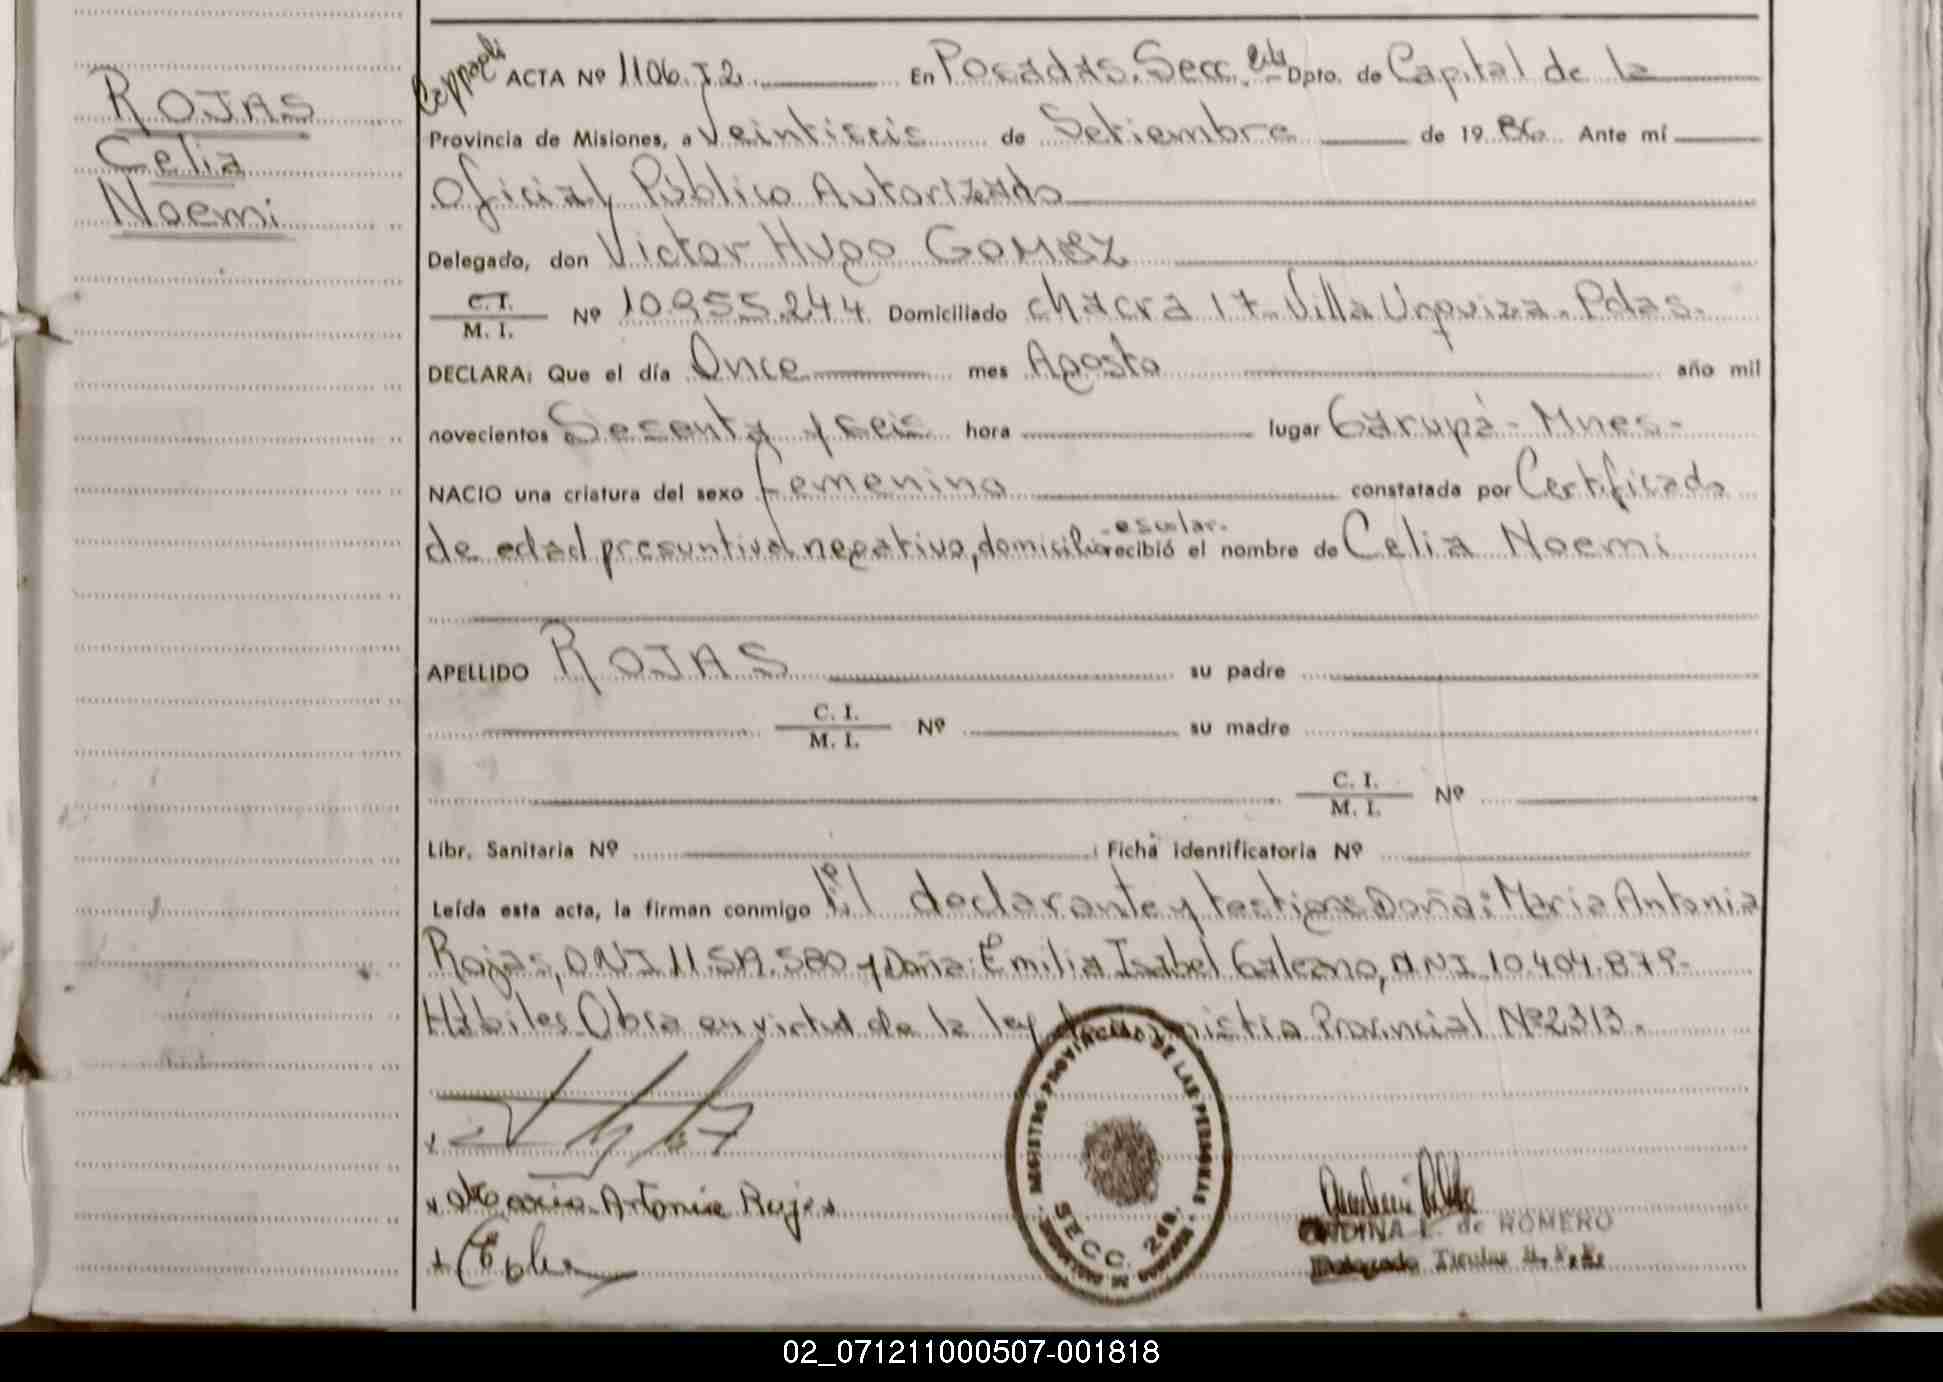 ROJAS
Celia
Noemi
ACTA Nº 1106. T.2. En Posadas. Secc. 2da Dpto. de Capital de la
Provincia de Misiones, a Veintiseis de Setiembre de 1986 Ante mí
Oficial Público Autorizado
Delegado, don Victor Hugo GOMEZ
C. I.
M. I. Nº 10.955.244 Domiciliado chacra 17- Villa Urquiza. Pdas.
DECLARA: Que el día Once mes Agosto año mil
novecientos Sesenta y seis hora lugar Garupá- Mnes-
NACIO una criatura del sexo femenino constatada por Certificado
de edad presuntiva negativo, domicilio -escolar- recibió el nombre de Celia Noemi
APELLIDO ROJAS su padre
C. I.
M. I. Nº su madre
C. I.
M. I. Nº
Libr. Sanitaria Nº Ficha identificatoria Nº
Leída esta acta, la firman conmigo El declarante y testigos Doña: Maria Antonia
Rojas, DNI 11. 580 y Doña: Emilia Isabel Galeano, DNI. 10.404.879-
Hábiles Obra en virtud de la ley de Amnistia Provincial Nº2313.
Maria Antonia Rojas
REGISTRO PROVINCIAL DE LAS PERSONAS
SECC. 2da.
ONDINA L. de ROMERO
Delegado Titular
02_071211000507-001818